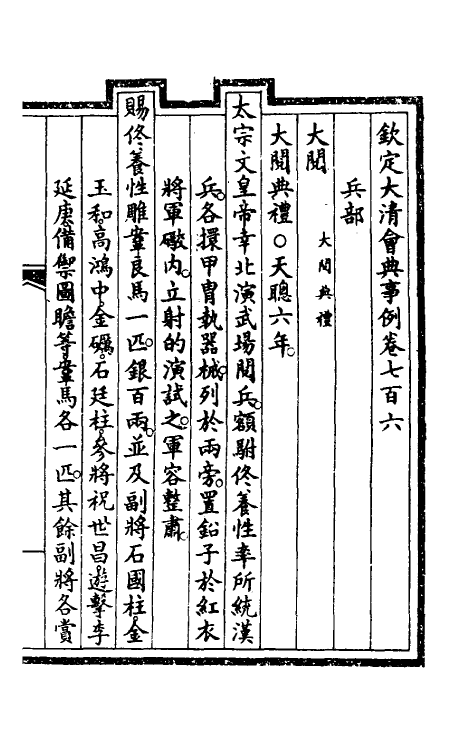 欽定大清會典事例卷七百六
兵部
大閱 大閱典禮
大閱典禮○天聰六年。
太宗文皇帝幸北演武場閱兵。額駙佟養性率所統漢
兵。各擐甲冑執器械。列於兩旁。置鉛子於紅衣
將軍礮內。立射的演試之。軍容整肅。
賜佟養性雕鞌良馬一匹。銀百兩。並及副將石國柱。金
玉和。高鴻中。金礪。石廷柱。參將祝世昌。遊擊李
延庚。備禦圖瞻等鞌馬各一匹。其餘副將各賞